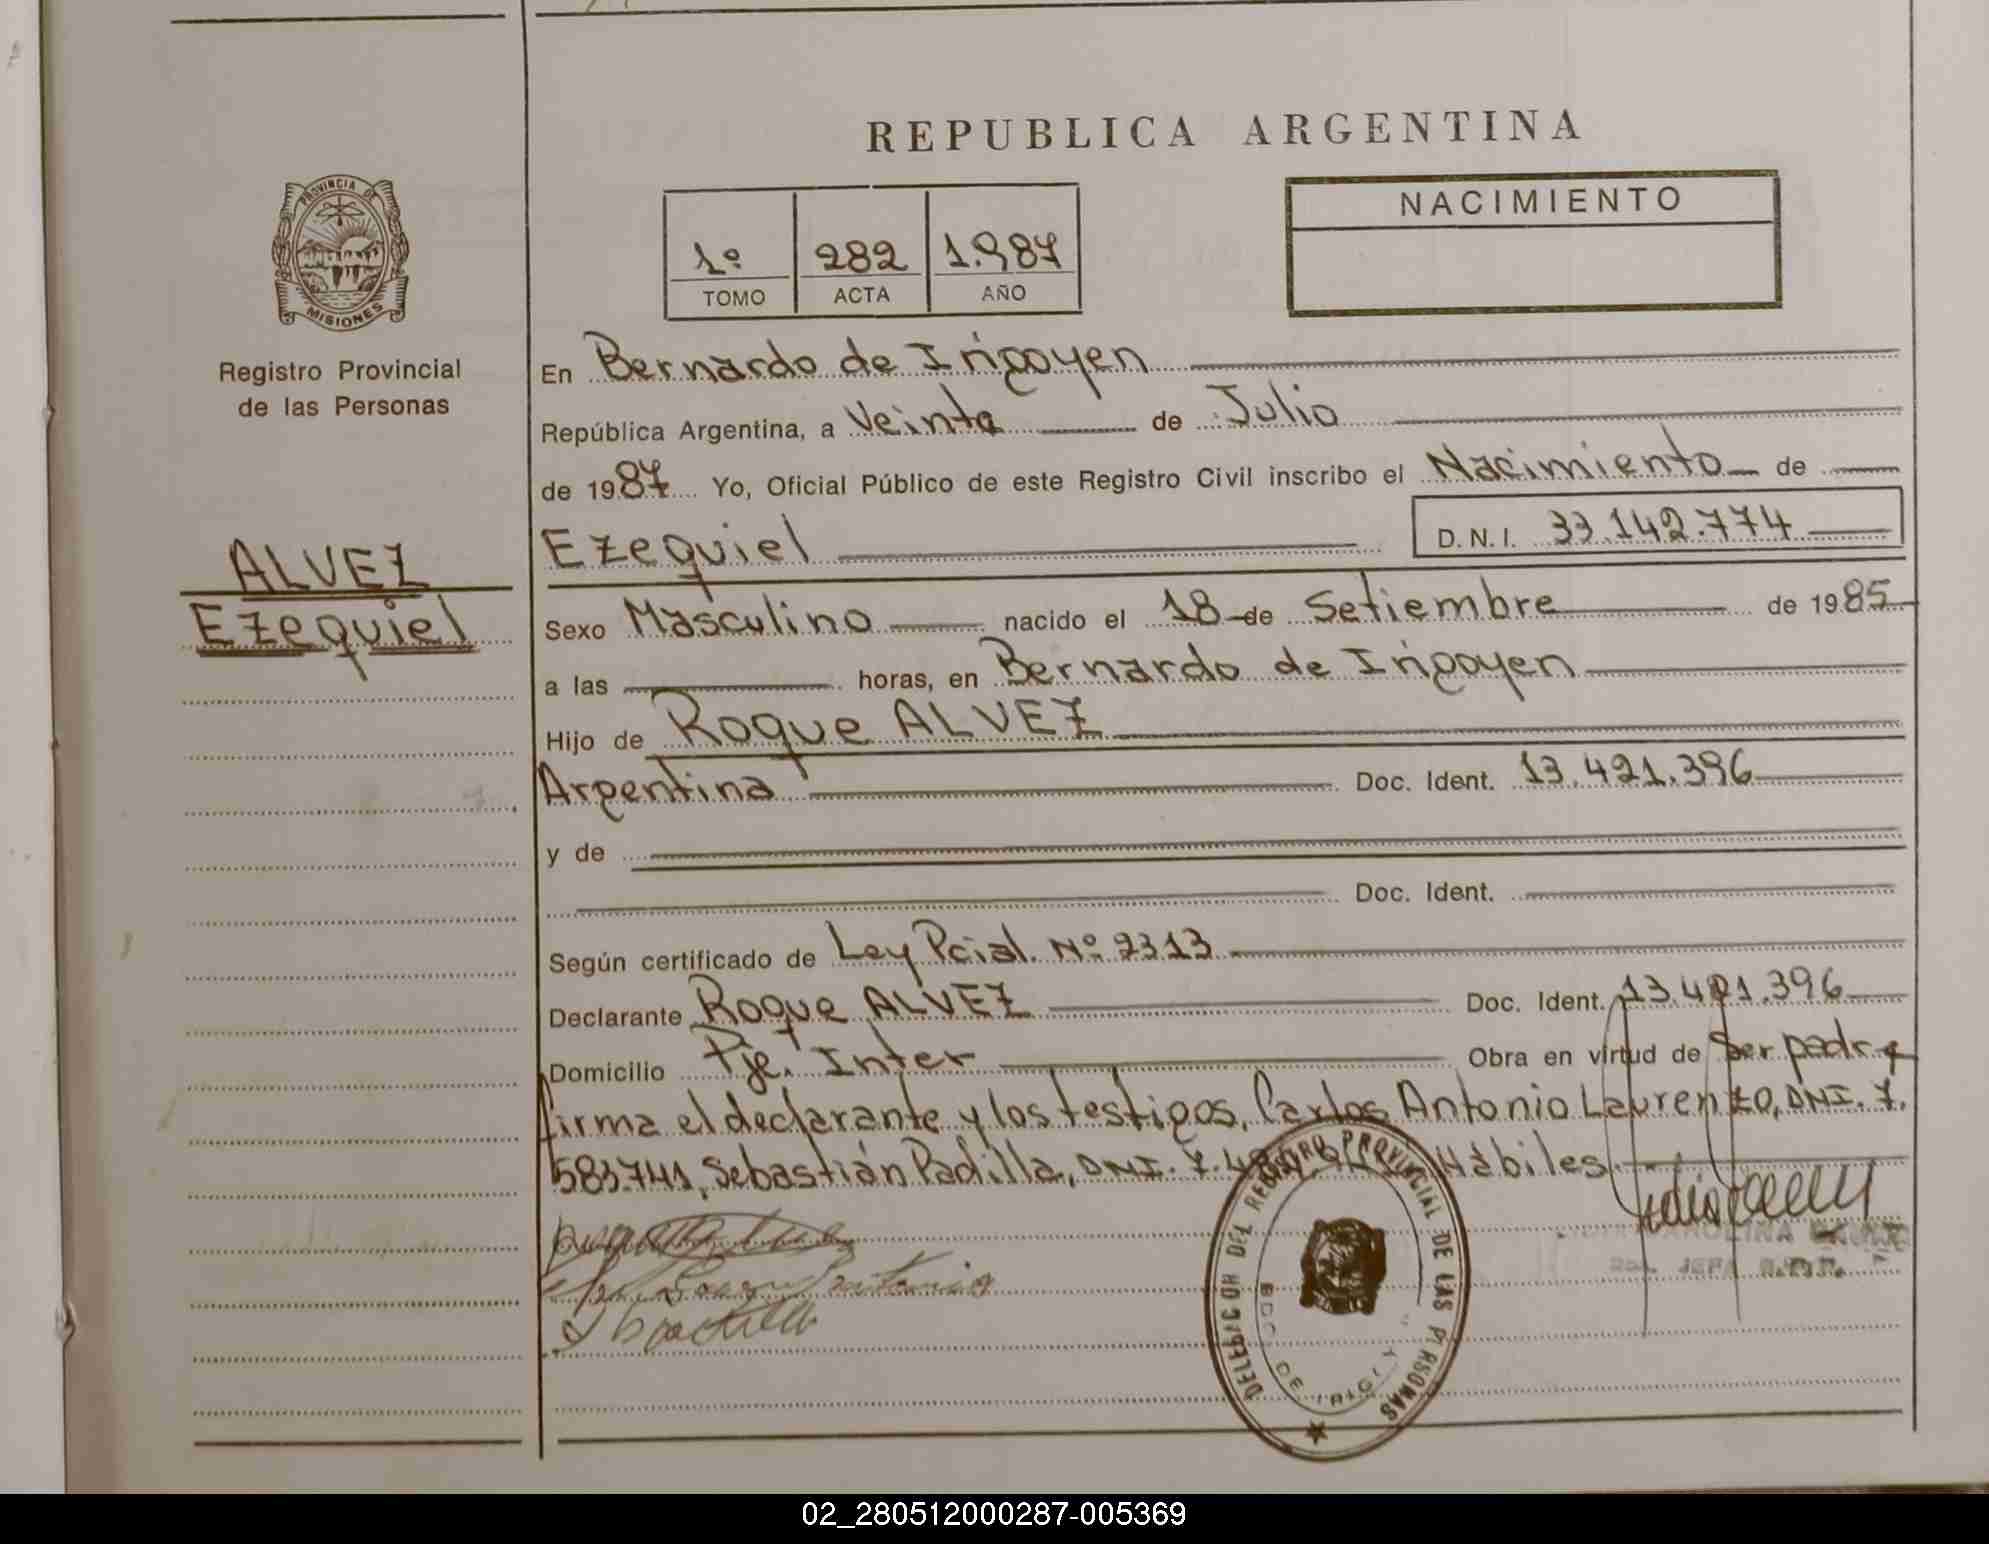 REPUBLICA ARGENTINA
PROVINCIA DE
MISIONES
Registro Provincial
de las Personas
1º 282 1.987
TOMO ACTA AÑO
NACIMIENTO
En Bernardo de Irigoyen
República Argentina, a Veinte de Julio
de 1987 Yo, Oficial Público de este Registro Civil inscribo el Nacimiento de
ALVEZ
Ezequiel
Ezequiel D.N.I. 33.142.774
Sexo Masculino nacido el 18 de Setiembre de 1985
a las horas, en Bernardo de Irigoyen
Hijo de Roque ALVEZ
Argentina Doc. Ident. 13.421.396
y de
Doc. Ident.
Según certificado de Ley Pcial. Nº 2313
Declarante Roque ALVEZ Doc. Ident. 13.421.396
Domicilio Pje. Inter Obra en virtud de Ser padre
firma el declarante y los testigos, Carlos Antonio Laurenzo, DNI. 7.
583.741, Sebastián Padilla, DNI. 7. Hábiles
DELEGACION DEL REGISTRO PROVINCIAL DE LAS PERSONAS
BDO. DE IRIGOY
02_280512000287-005369